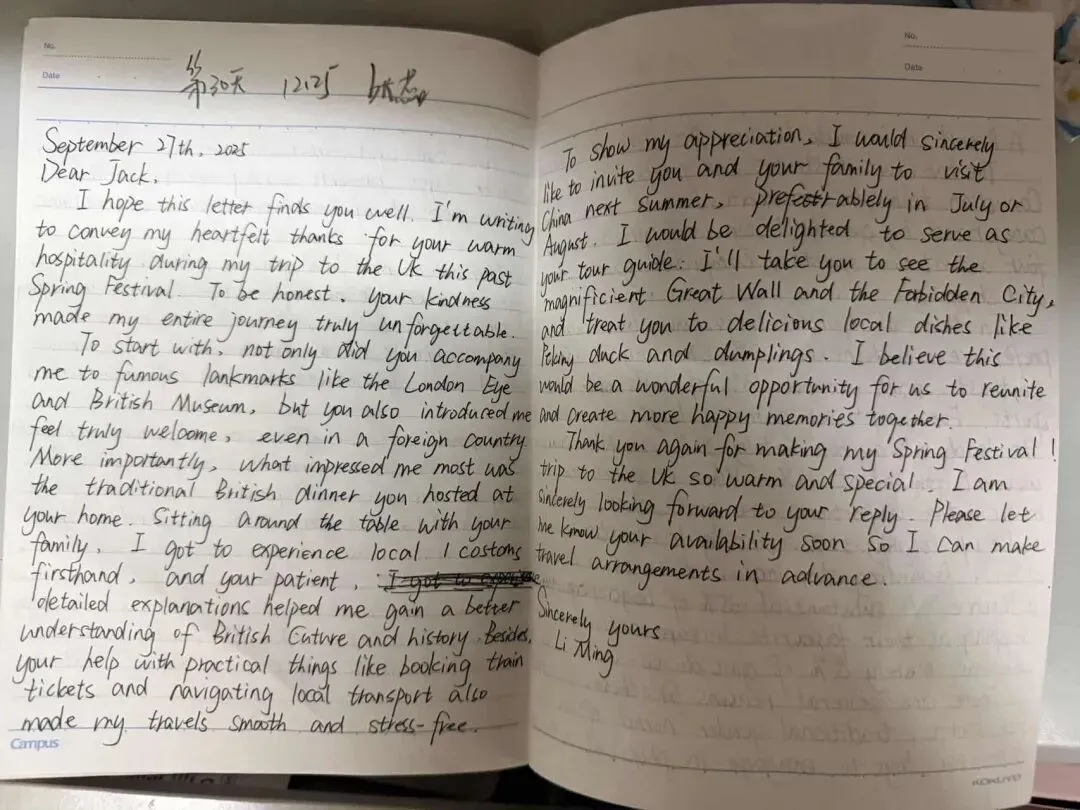 No.
Date
第30天 12.25
September 27th, 2025
Dear Jack,
I hope this letter finds you well. I'm writing
to convey my heartfelt thanks for your warm
hospitality during my trip to the UK this past
Spring Festival. To be honest, your kindness
made my entire journey truly unforgettable.
To start with, not only did you accompany
me to famous lankmarks like the London Eye
and British Museum, but you also introduced me
feel truly welcome, even in a foreign country.
More importantly, what impressed me most was
the traditional British dinner you hosted at
your home. Sitting around the table with your
family, I got to experience local costoms
firsthand, and your patient,
detailed explanations helped me gain a better
understanding of British Cuture and history. Besides,
your help with practical things like booking train
tickets and navigating local transport also
made my travels smooth and stress-free.
Campus
No.
Date
To show my appreciation, I would sincerely
like to invite you and your family to visit
China next summer, prefestrablely in July or
August. I would be delighted to serve as
your tour guide: I'll take you to see the
magnificient Great Wall and the Fobidden City,
and treat you to delicious local dishes like
Peking duck and dumplings. I believe this
would be a wonderful opportunity for us to reunite
and create more happy memories together.
Thank you again for making my Spring Festival!
trip to the UK so warm and special. I am
sincerely looking forward to your reply. Please let
me know your availability soon so I can make
travel arrangements in advance.
Sincerely yours
Li Ming
KOKUYO